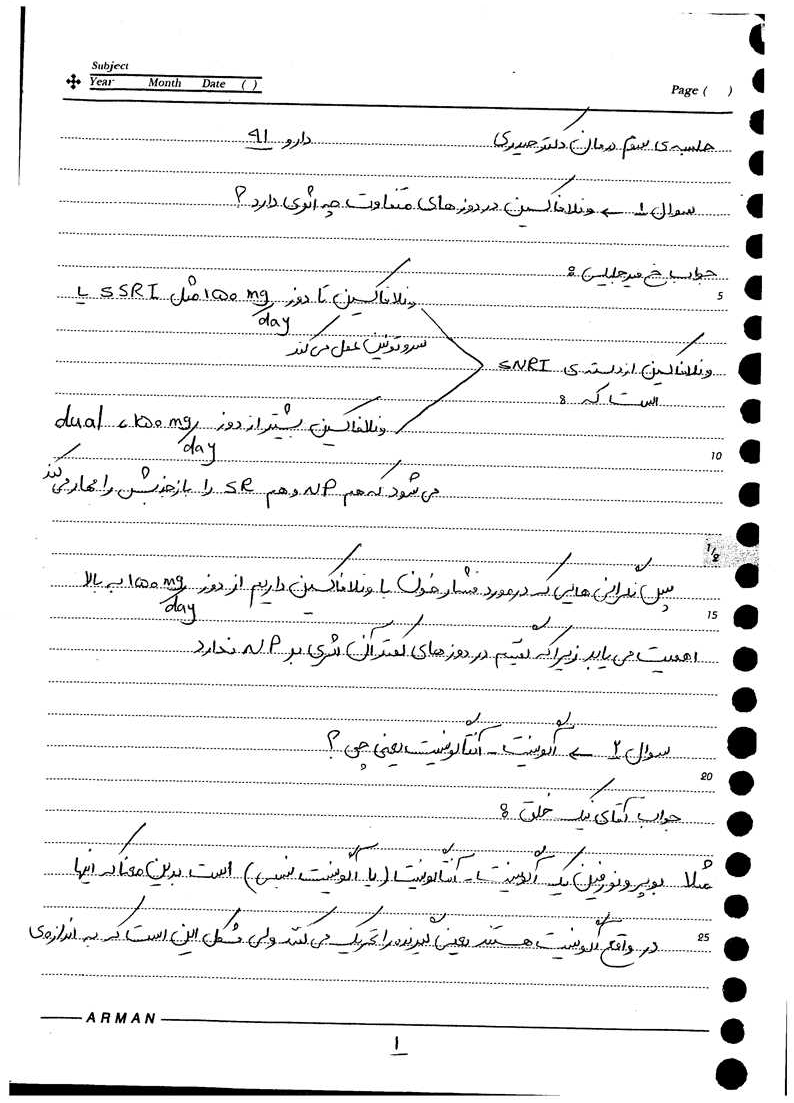 Subject
Year Month Date ( )
Page ( )
جلسه ی سوم درمان دکتر حیدری دارو ۹۱
سوال ۱ ← ونلافاکسین در دوزهای متفاوت چه اثری دارد؟
جواب خ میرجلیلی :
5
ونلافاکسین تا دوز ۱۵۰ mg/day مثل SSRI یا
سروتونین عمل می کند
ونلافاکسین از دسته ی SNRI
است که :
ونلافاکسین بیشتر از دوز ۱۵۰ mg/day، dual
10
می شود که هم NP و هم SR را بازجذبشن را مهار می کند
1/8
پس نگرانی هایی که در مورد فشار خون با ونلافاکسین داریم از دوز ۱۵۰ mg/day به بالا
15
اهمیت می یابد زیرا که گفتیم در دوزهای کمتر آن اثری بر NP ندارد
سوال ۲ ← آگونیست - آنتاگونیست یعنی چی؟
20
جواب آقای نیک خلق :
مثلا بوپرونورفین یک آگونیست - آنتاگونیست (یا آگونیست نسبی) است بدین معنا که اینها
در واقع آگونیست هستند یعنی گیرنده را تحریک می کنند ولی مشکل این است که به اندازه ی
25
ARMAN
۱